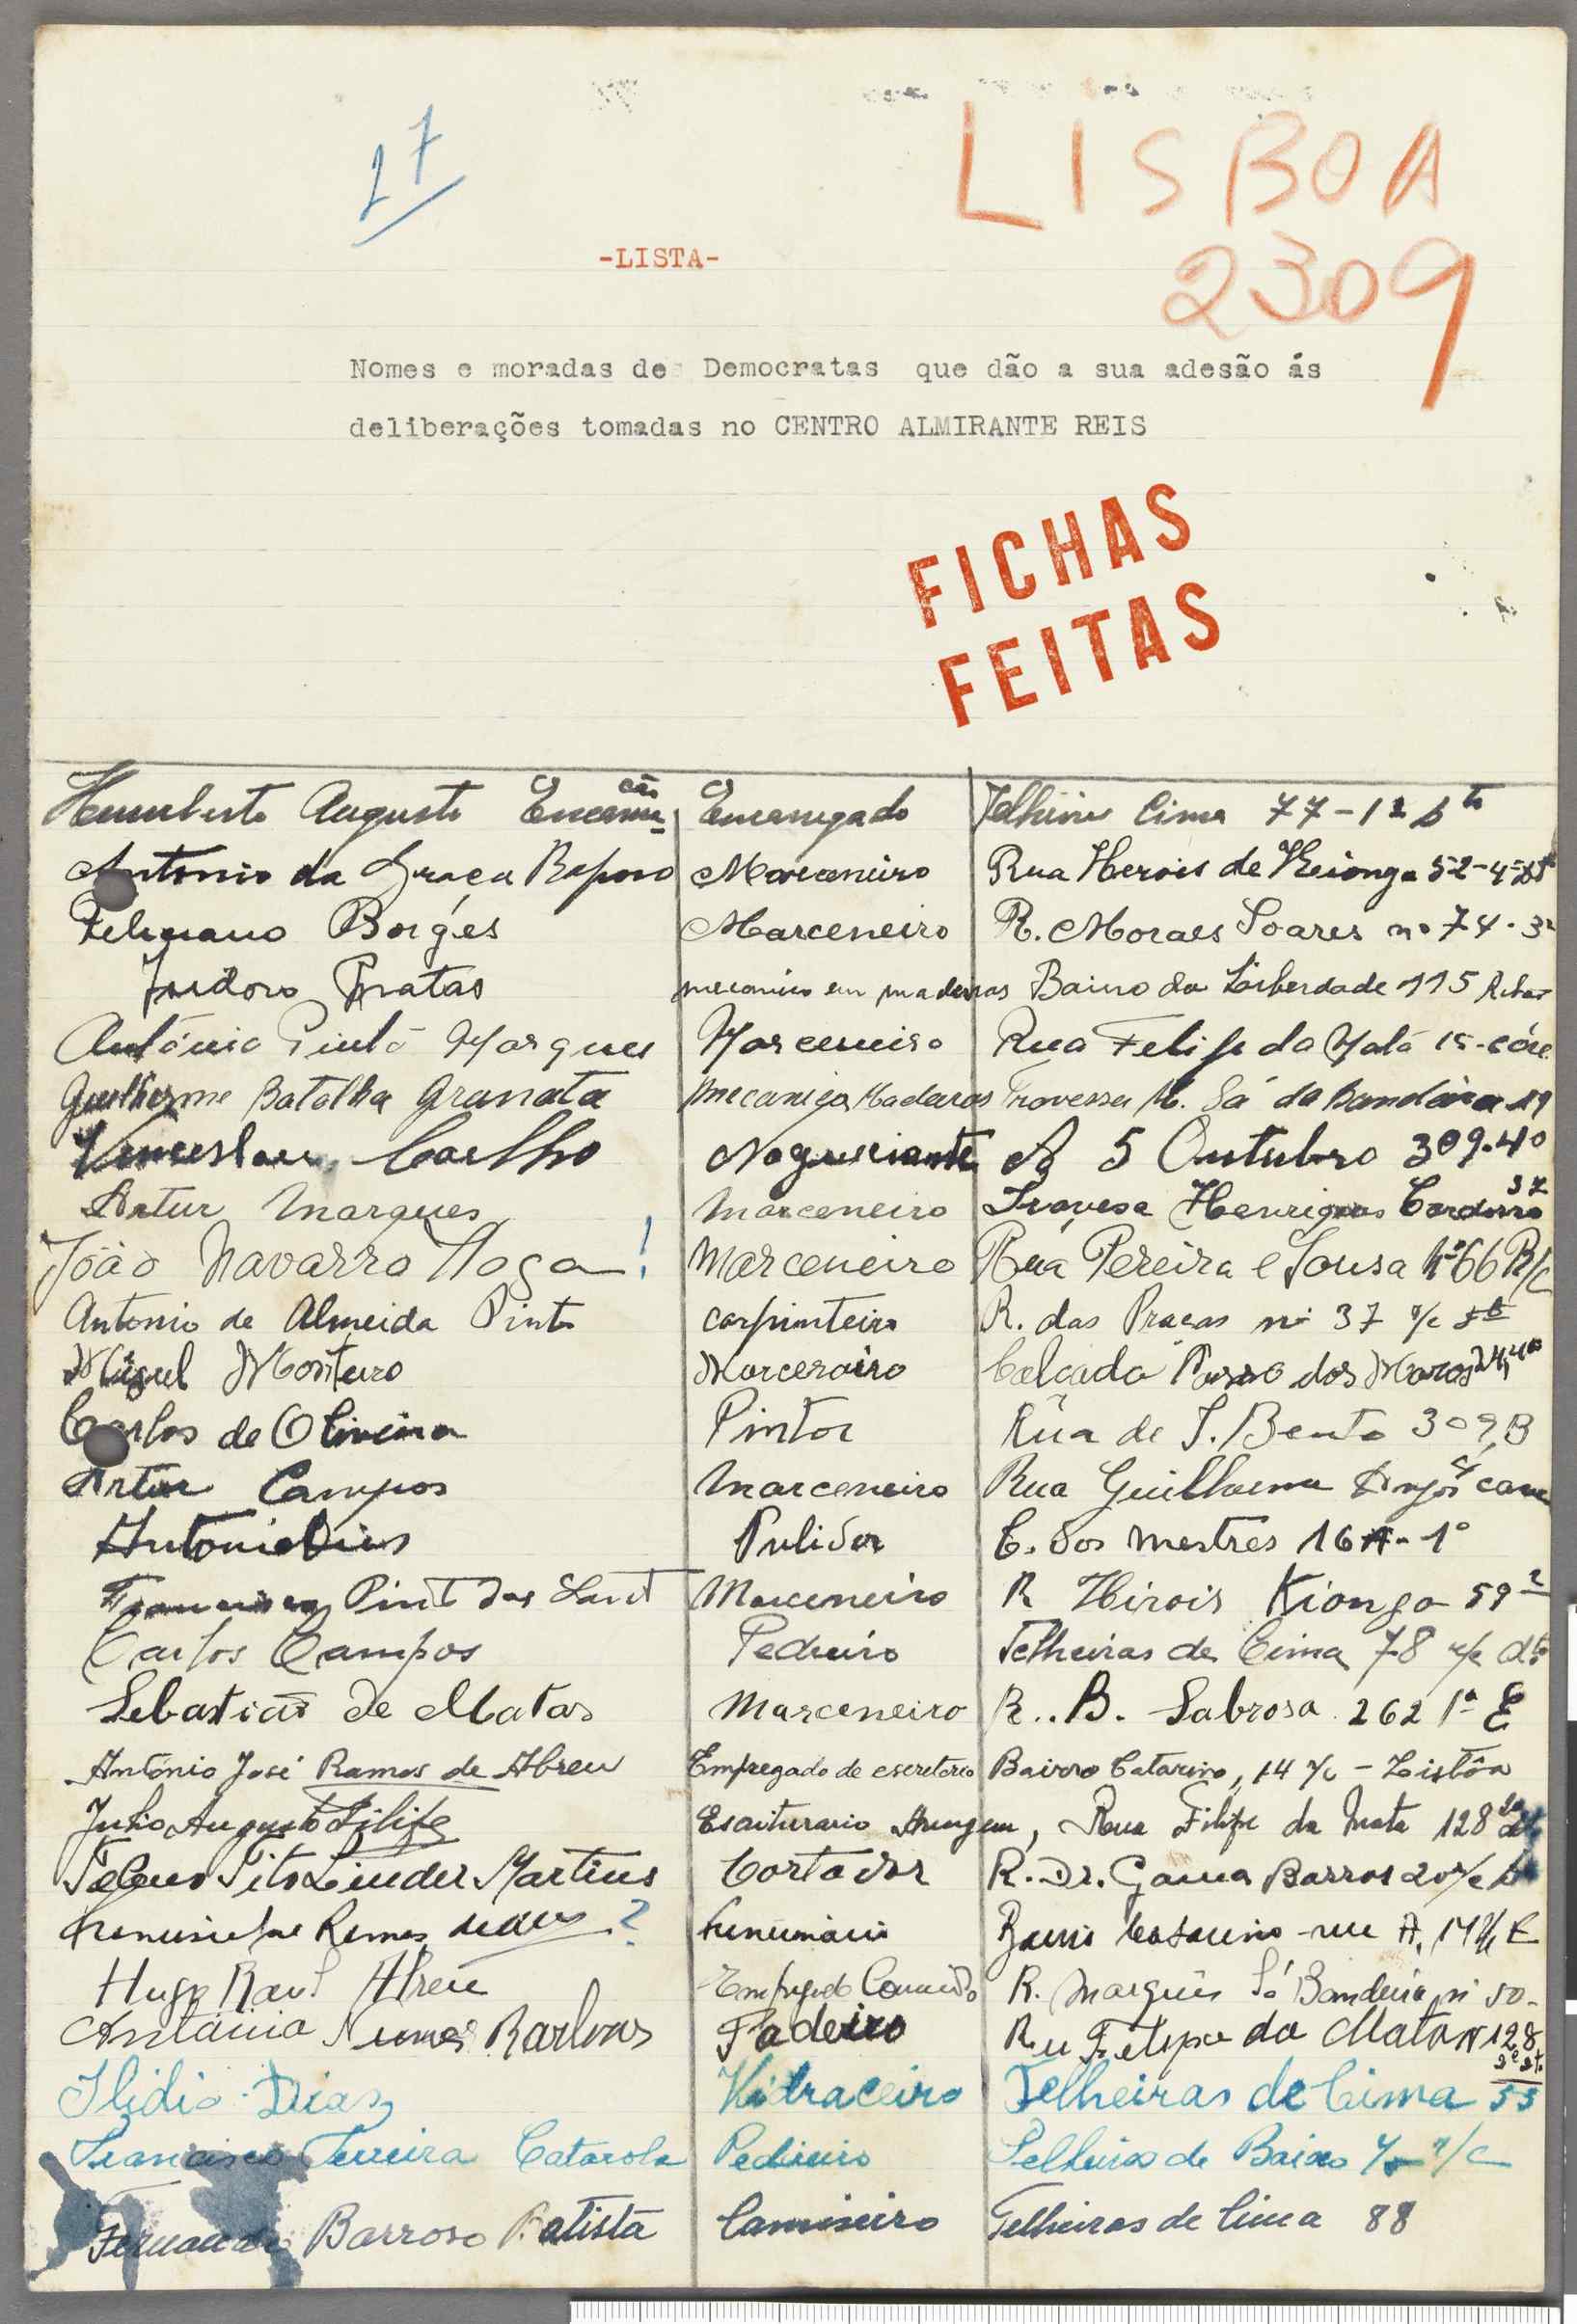 27
LISBOA
2309
-LISTA-
Nomes e moradas de Democratas que dão a sua adesão ás
deliberações tomadas no CENTRO ALMIRANTE REIS
FICHAS
FEITAS
Humberto Augusto Encarnação Encarregado Cima 77-1º
Antonio da Graça Raposo Marceneiro Rua Herois de Keionga 52-4º
Borges Marceneiro R. Moraes Soares nº 74-3º
Isidoro Pratas mecanico em madeiras Bairro da Liberdade 115
António Pinto Marques Marceneiro Rua Felipe da Mata 15-cáve
Guilherme Batalha Granata Mecanico Madeiras Travessa M. Sá da Bandeira 19
Venceslau Coelho Negociante A 5 Outubro 309-4º
Artur Marques Marceneiro Travesa Henriques Cardoso 37
João Navarro Hoga ! Marceneiro Rua Pereira e Sousa Nº 66 R/c
Antonio de Almeida Pinto carpinteiro R. das Pracas nº 37 r/c
Miguel Monteiro Marceneiro Calçada Poço dos Mouros 24,4º
Carlos de Oliveira Pintor Rua de S. Bento 309,B
Artur Campos Marceneiro Rua Guilherme Anjos 4 cave
Antonio Dias Pulidor C. dos mestres 16A-1º
Francisco Pint dos Sant Marceneiro R Hirois Kionga 59 2º
Carlos Campos Pedreiro Telheiras de Cima 78 r/c dtº
Sebastião de Matos Marceneiro R. B. Sabrosa 262 1º E
António José Ramos de Abreu Empregado de escritório Bairro Catarino, 14 r/c - Lisbôa
Julio Augusto Filipe Escriturario, Rua Filipe da Mata 128
Tito Martins Cortador R. Dr. Gama Barros 20 r/c
Ramos ? r/c E
Hugo Raul Abreu R. Marquês Sá Bandeira nº 50-
António Nunes Barbosa Padeiro Ru Felipe da Mata Nº 128
Ilidio Dias Vidraceiro Telheiras de Cima 55
Francisco Ferreira Catarola Pedreiro Telheiras de Baixo r/c
Fernando Barroso Batista Camiseiro Telheiras de Cima 88